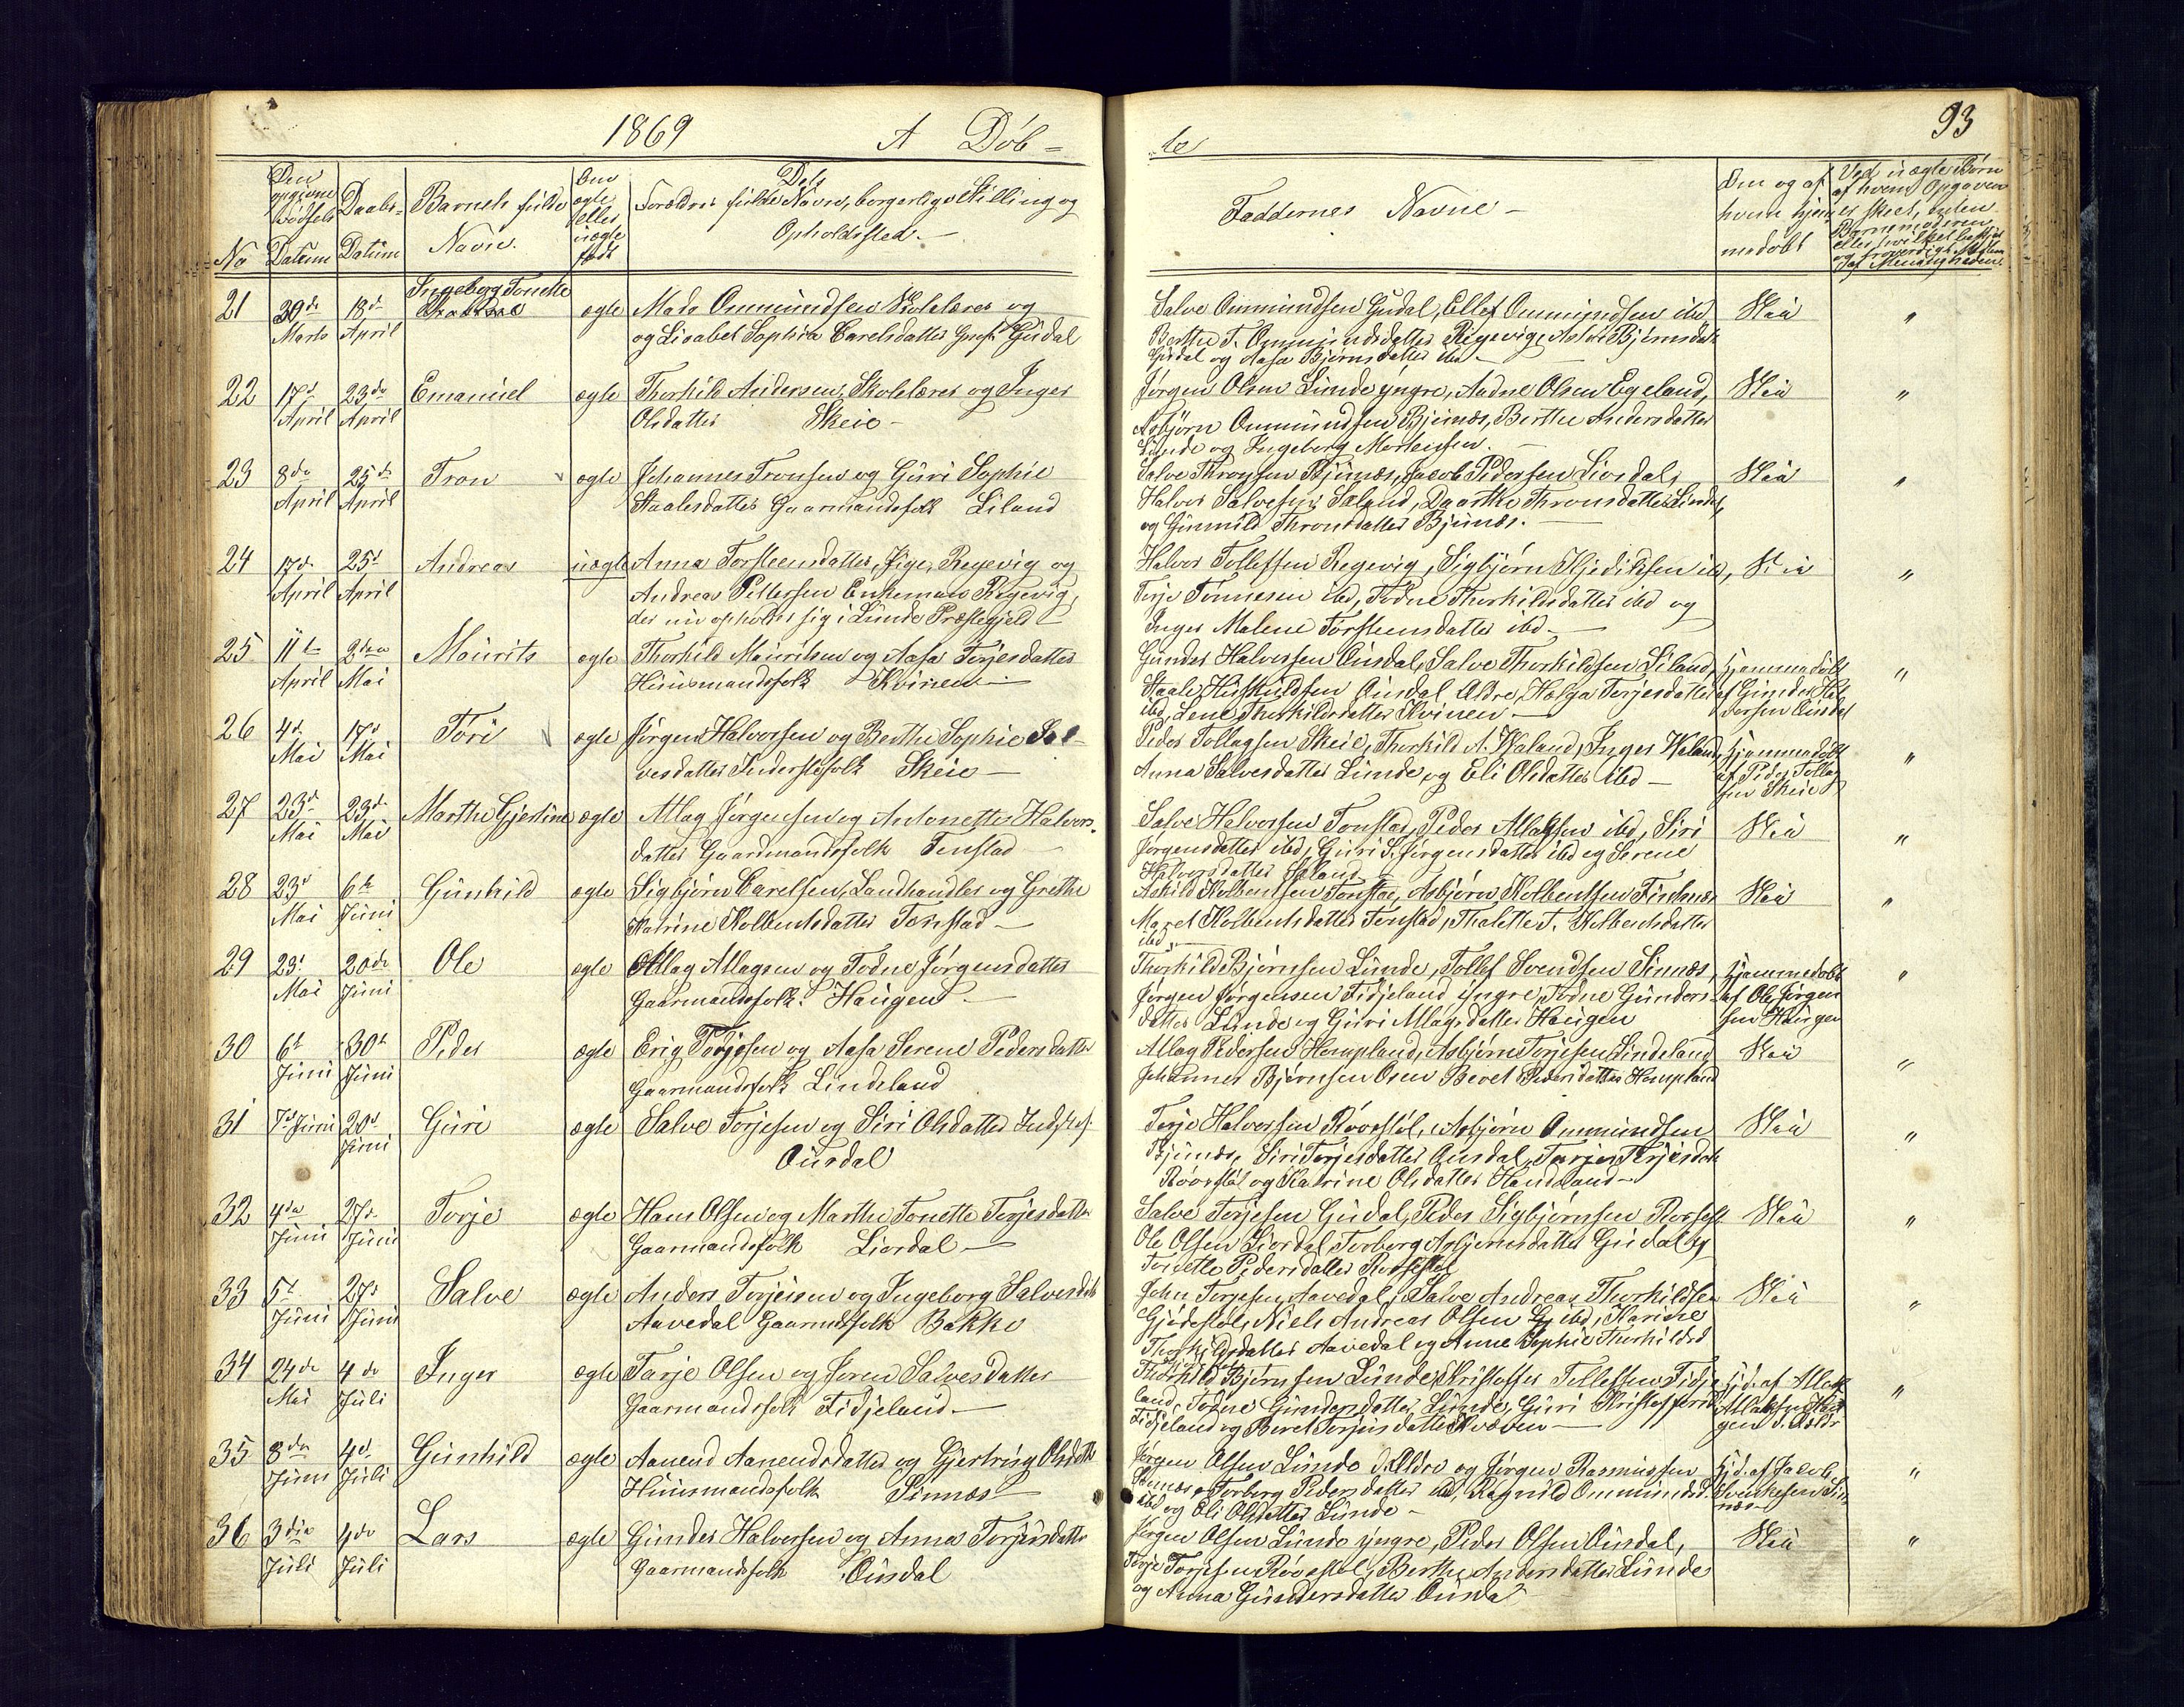 1869 A Döb =
te
93
No
Den opgivne Födsels Datum
Daabs- Datum
Barnets fulde Navn.
Om ægte eller uægte födt
Dets Forældres fulde Navn, borgerlige Stilling og Opholdssted. —
Faddernes Navne —
Om og af hvem hjemmedöbt
Ved uægte Börn af hvem Opgaven er skeet, enten Barnemoderen eller hvilket og troværdigt Medlem af Menigheden.
21 30de Marts 18de April
Ingeborg Tonette
ægte
Mads Ommundsen Skolelærer og
og Lisabet Sophia Carelsdatter Gudal
Salve Ommundsen Gudal, Ellef Ommundsen ibd
Berthe T. Ommundsdatter Regevig, Bjørnsdatt
Gudal og Aasa Bjørnsdatter ibd —
Nei "
22 17d April 23de April
Emanuel
ægte
Thorkild Andersen, Skolelærer og Inger
Olsdatter Skeie —
Jørgen Olsen Lunde yngre, Aadne Olsen Egeland,
Asbjørn Ommundsen Bjunes, Berthe Andersdatter
Lunde og Ingeborg Mortensen. —
Nei "
23 8de April 25de April
Tron
ægte
Johannes Tronsen og Guri Sophie
Staalesdatter Gaarmandsfolk Liland
Salve Thronsen Bjunes, Jacob Pedersen Liordal,
Halvor Salvesen Saland, Daarthe Thronsdatter
og Gunnild Thronsdatter Bjunes. —
Nei "
24 17d. April 25d April
Andreas
uægte
Anna Torsteensdatter, Pige, Regevig og
Andreas Pettersen Enkemand Regevig,
der nu opholder sig i Lunde Præstegjeld
Halvor Tollefsen Regevig, Sigbjørn ibd,
Torje Tonnesen ibd, Todne Thorkildsdatter ibd og
Inger Malene Torsteensdatter ibd —
Nei "
25 11te April 2den Mai
Maurits
ægte
Thorkild Mauritsen og Aasa Torjesdatter
Huusmandsfolk Kvinen —
Gunder Halvorsen Ousdal, Salve Thorkildsen Liland,
Staale Ousdal Ældre, Helga Torjesdatter
ibd, Lene Thorkildsdatter Kvinen —
Hjemmedöbt
af Gunder Hal
vorsen Ousdal
"
26 4d. Mai 17d Mai
Tori
ægte
Jørgen Halvorsen og Berthe Sophie Sal-
vesdatter Inderstefolk Skeie —
Peder Tollagsen Skeie, Thorkild A. Haland, Inger Haland,
Anna Salvesdatter Lunde og Eli Olsdatter ibd —
Hjemmedöbt
af Peder Tollag
sen Skeie
"
27 23d Mai 23d. Mai
Marthe Gjertine
ægte
Atlag Jørgensen og Antonette Halvors-
datter Gaardmandsfolk Tonstad —
Salve Halvorsen Tonstad, Peder Atlaksen ibd, Siri
Jørgensdatter ibd, Guri S. Jørgensdatter ibd og Serene
Halvorsdatter
Nei "
28 23d Mai 6te Juni
Gunhild
ægte
Sigbjørn Carelsen, Landhandler og Grethe
Katrine Kolbentsdatter Tonstad —
Askild Kolbentsen Tonstad, Asbjørn Kolbentsen
Maret Kolbentsdatter Tonstad, Thalette T. Kolbentsdatter
ibd —
Nei "
29 23d Mai 20de Juni
Ole
ægte
Atlag Atlagsen og Todne Jørgensdatter
Gaarmandsfolk Haugen —
Thorkild Bjørnsen Lunde, Tollef Svendsen Sinnes,
Jørgen Jørgensen Fidjeland yngre, Todne Gunders-
datter Lunde og Guri Atlagsdatter Haugen
Hjemmedöbt
af Ole Jørgen
sen Haugen
"
30 6t Juni 30t Juni
Peder
ægte
Erig Torjesen og Aasa Serene Pedersdatter
Gaarmandsfolk Lindeland
Atlag Pedersen Hompland, Asbjørn Torjesen Lindeland
Johannes Bjørnsen Osen Beret Pedersdatter Hompland
Nei "
31 7d Juni 20d Juni
Guri
ægte
Salve Torjesen og Siri Olsdatter
Ousdal
Torje Halvorsen Röösstöl, Asbjørn Ommundsen
Bjunes, Siri Torjesdatter Ousdal, Torjesdatt
Röösstöl og Katrine Olsdatter Handeland —
Nei "
32 4de Juni 27d. Juni
Torje
ægte
Hans Olsen og Marthe Tonette Torjesdatter
Gaarmandsfolk Liordal —
Salve Torjesen Gudal, Peder Sigbjørnsen
Ole Olsen Liordal, Torborg Asbjørnsdatter Gudal og
Tonette Pedersdatter
Nei "
33 5t Juni 27d Juni
Salve
ægte
Anders Torjesen og Ingeborg Salvesdtr
Aavedal Gaarmdsfolk Bakke
John Torjesen Aavedal, Salve Andreas Thorkildsen
Niels Andreas Olsen ibd, Karine
Thorkildsdatter Aavedal og Anne Sophie Thorkildsd
Nei "
34 24de Mai 4de Juli
Inger
ægte
Tarje Olsen og Søren Salvesdatter
Gaarmandsfolk Fidjeland —
Thorkild Bjørnsen Lunde, Kristoffer Tollefsen Fidje
land, Todne Gundersdatter Lunde, Guri
Fidjeland og Beret Torjusdatter Kvæven —
Hj.d. af Atlak
Atlaksen Hau
gen d. Ældr
"
35 8de Juni 4d. Juli
Gunhild
ægte
Aanend Aanendsdatter og Gjertrug Olsdatter
Huusmandsfolk Sinnes —
Jørgen Olsen Lunde d. Ældre og Jørgen Rasmussen
Sinnes, Torborg Pedersdatter ibd, Ragnild Ommundsd.
ibd og Eli Olsdatter Lunde —
Hj.d. af Jacob
Sin
nes —
"
36 3die Juli 4de Juli
Lars
ægte
Gunder Halvorsen og Anna Torjusdatter
Gaarmandsfolk Ousdal
Jørgen Olsen Lunde yngre, Peder Olsen Ousdal,
Torje Torjesen Röösstöl, Berthe Andersdatter Lunde
og Anna Gundersdatter Ousdal
Nei "